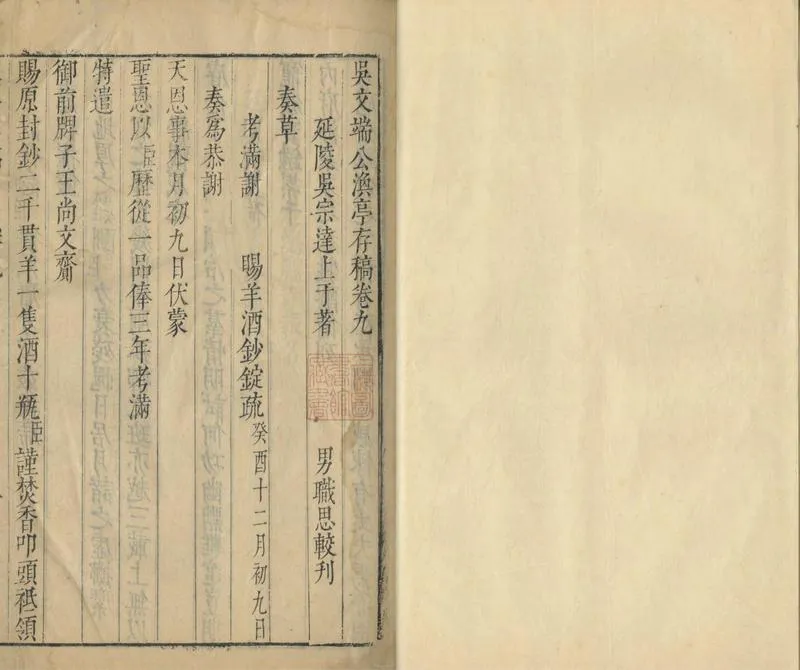 吳文端公渙亭存稿卷九
延陵吳宗達上于著 男職思較刊
奏草
考滿謝 賜羊酒鈔錠疏 癸酉十二月初九日
奏為恭謝
天恩事本月初九日伏蒙
聖恩以臣歷從一品俸三年考滿
特遣
御前牌子王尚文齎
賜原封鈔二千貫羊一隻酒十瓶臣謹焚香叩頭祗領